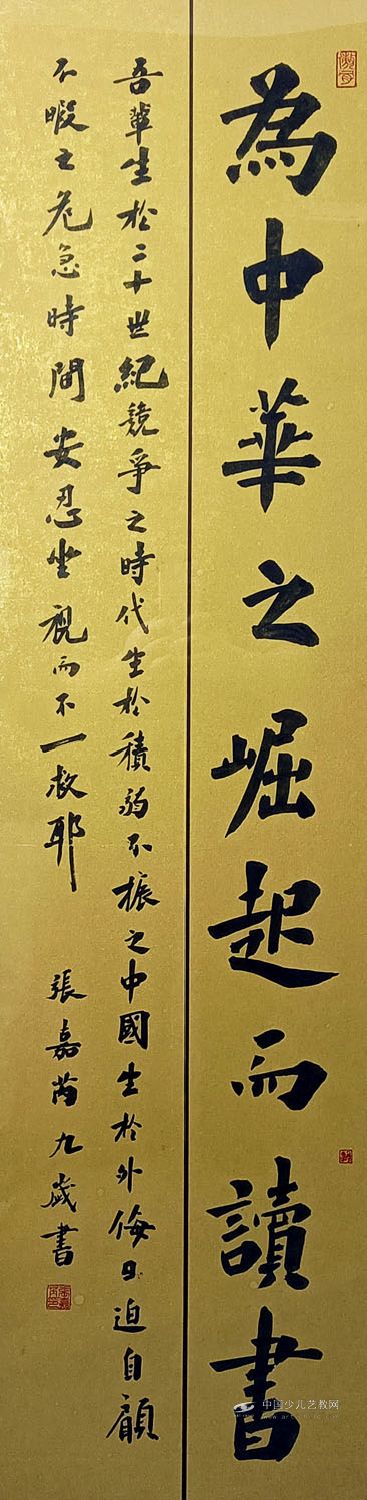 為中華之崛起而讀書
吾輩生於二十世紀競爭之時代生於積弱不振之中國生於外侮日迫自顧
不暇之危急時間安忍坐視而不一救耶
張嘉芮九歲書
中国少儿艺教网